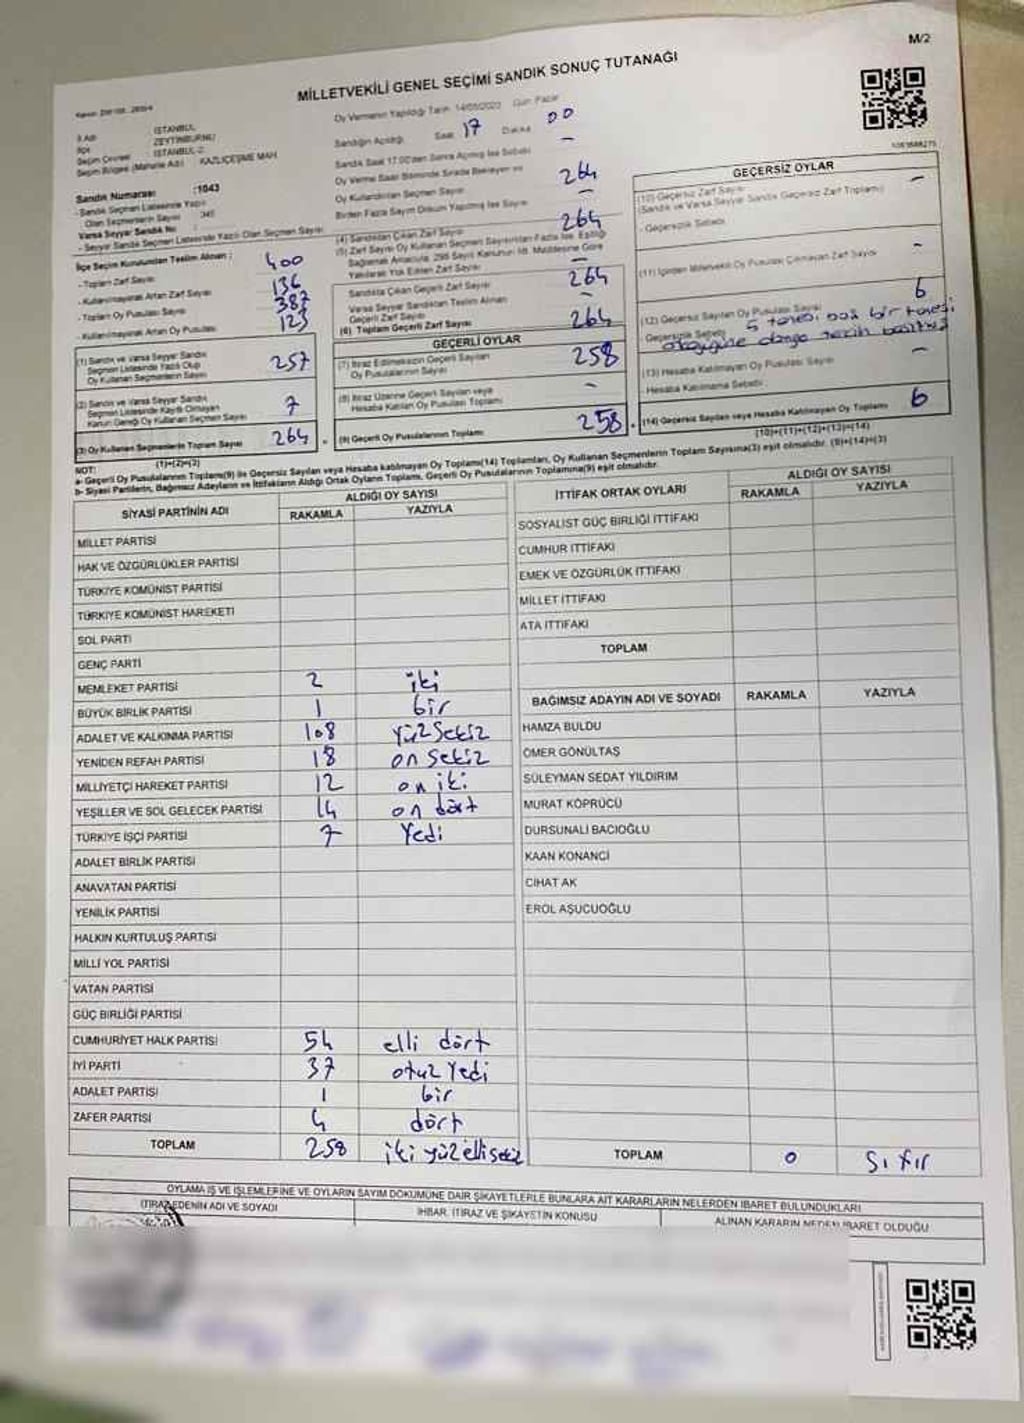 M/2
MİLLETVEKİLİ GENEL SEÇİMİ SANDIK SONUÇ TUTANAĞI
İli Adı İSTANBUL
İlçe ZEYTİNBURNU
Seçim Çevresi İSTANBUL-2
Seçim Bölgesi (Mahalle Adı) KAZLIÇEŞME MAH
Sandık Numarası :1043
- Sandık Seçmen Listesinde Yazılı
Olan Seçmenlerin Sayısı 345
Varsa Seyyar Sandık No
- Seyyar Sandık Seçmen Listesinde Yazılı Olan Seçmen Sayısı
Oy Vermenin Yapıldığı Tarih 14/05/2023 Gün Pazar
Sandığın Açıldığı Saat 17 Dakika 00
Sandık Saat 17.00'den Sonra Açılmış İse Sebebi —
Oy Verme Saati Bitiminde Sırada Bekleyen ve
Oy Kullandırılan Seçmen Sayısı
264
Birden Fazla Sayım Döküm Yapılmış İse Sayısı —
İlçe Seçim Kurulundan Teslim Alınan :
- Toplam Zarf Sayısı 400
- Kullanılmayarak Artan Zarf Sayısı 136
- Toplam Oy Pusulası Sayısı 387
- Kullanılmayarak Artan Oy Pusulası 123
(1) Sandık ve Varsa Seyyar Sandık
Seçmen Listesinde Yazılı Olup
Oy Kullanan Seçmenlerin Sayısı 257
(2) Sandık ve Varsa Seyyar Sandık
Seçmen Listesinde Kayıtlı Olmayan
Kanun Gereği Oy Kullanan Seçmen Sayısı 7
(3) Oy Kullanan Seçmenlerin Toplam Sayısı 264
(1)+(2)=(3)
(4) Sandıktan Çıkan Zarf Sayısı 264
(5) Zarf Sayısı Oy Kullanan Seçmen Sayısından Fazla İse, Eşitliği
Sağlamak Amacıyla, 298 Sayılı Kanunun 98. Maddesine Göre
Yakılarak Yok Edilen Zarf Sayısı —
Sandıkta Çıkan Geçerli Zarf Sayısı 264
Varsa Seyyar Sandıktan Teslim Alınan
Geçerli Zarf Sayısı —
(6) Toplam Geçerli Zarf Sayısı 264
GEÇERLİ OYLAR
(7) İtiraz Edilmeksizin Geçerli Sayılan
Oy Pusulalarının Sayısı 258
(8) İtiraz Üzerine Geçerli Sayılan veya
Hesaba Katılan Oy Pusulası Toplamı —
(9) Geçerli Oy Pusulalarının Toplamı 258
GEÇERSİZ OYLAR
(10) Geçersiz Zarf Sayısı —
(Sandık ve Varsa Seyyar Sandık Geçersiz Zarf Toplamı)
- Geçersizlik Sebebi
(11) İçinden Milletvekili Oy Pusulası Çıkmayan Zarf Sayısı -
(12) Geçersiz Sayılan Oy Pusulası Sayısı 6
- Geçersizlik Sebebi 5 tanesi boş bir tanesi
(13) Hesaba Katılmayan Oy Pusulası Sayısı —
- Hesaba Katılmama Sebebi
(14) Geçersiz Sayılan veya Hesaba Katılmayan Oy Toplamı 6
(10)+(11)+(12)+(13)=(14)
NOT:
a- Geçerli Oy Pusulalarının Toplamı(9) ile Geçersiz Sayılan veya Hesaba katılmayan Oy Toplamı(14) Toplamları, Oy Kullanan Seçmenlerin Toplam Sayısına(3) eşit olmalıdır. (9)+(14)=(3)
b- Siyasi Partilerin, Bağımsız Adayların ve İttifakların Aldığı Ortak Oyların Toplamı, Geçerli Oy Pusulalarının Toplamına(9) eşit olmalıdır.
SİYASİ PARTİNİN ADI ALDIĞI OY SAYISI
RAKAMLA YAZIYLA
MİLLET PARTİSİ
HAK VE ÖZGÜRLÜKLER PARTİSİ
TÜRKİYE KOMÜNİST PARTİSİ
TÜRKİYE KOMÜNİST HAREKETİ
SOL PARTİ
GENÇ PARTİ
MEMLEKET PARTİSİ 2 iki
BÜYÜK BİRLİK PARTİSİ 1 bir
ADALET VE KALKINMA PARTİSİ 108 Yüz Sekiz
YENİDEN REFAH PARTİSİ 18 on Sekiz
MİLLİYETÇİ HAREKET PARTİSİ 12 on iki
YEŞİLLER VE SOL GELECEK PARTİSİ 14 on dört
TÜRKİYE İŞÇİ PARTİSİ 7 Yedi
ADALET BİRLİK PARTİSİ
ANAVATAN PARTİSİ
YENİLİK PARTİSİ
HALKIN KURTULUŞ PARTİSİ
MİLLİ YOL PARTİSİ
VATAN PARTİSİ
GÜÇ BİRLİĞİ PARTİSİ
CUMHURİYET HALK PARTİSİ 54 elli dört
İYİ PARTİ 37 otuz Yedi
ADALET PARTİSİ 1 bir
ZAFER PARTİSİ 4 dört
TOPLAM 258 iki yüz elli sekiz
İTTİFAK ORTAK OYLARI ALDIĞI OY SAYISI
RAKAMLA YAZIYLA
SOSYALİST GÜÇ BİRLİĞİ İTTİFAKI
CUMHUR İTTİFAKI
EMEK VE ÖZGÜRLÜK İTTİFAKI
MİLLET İTTİFAKI
ATA İTTİFAKI
TOPLAM
BAĞIMSIZ ADAYIN ADI VE SOYADI RAKAMLA YAZIYLA
HAMZA BULDU
ÖMER GÖNÜLTAŞ
SÜLEYMAN SEDAT YILDIRIM
MURAT KÖPRÜCÜ
DURSUNALİ BACIOĞLU
KAAN KONANCİ
CİHAT AK
EROL AŞUCUOĞLU
TOPLAM 0 Sıfır
OYLAMA İŞ VE İŞLEMLERİNE VE OYLARIN SAYIM DÖKÜMÜNE DAİR ŞİKAYETLERLE BUNLARA AİT KARARLARIN NELERDEN İBARET BULUNDUKLARI
İTİRAZ EDENİN ADI VE SOYADI İHBAR, İTİRAZ VE ŞİKAYETİN KONUSU ALINAN KARARIN NEDEN İBARET OLDUĞU